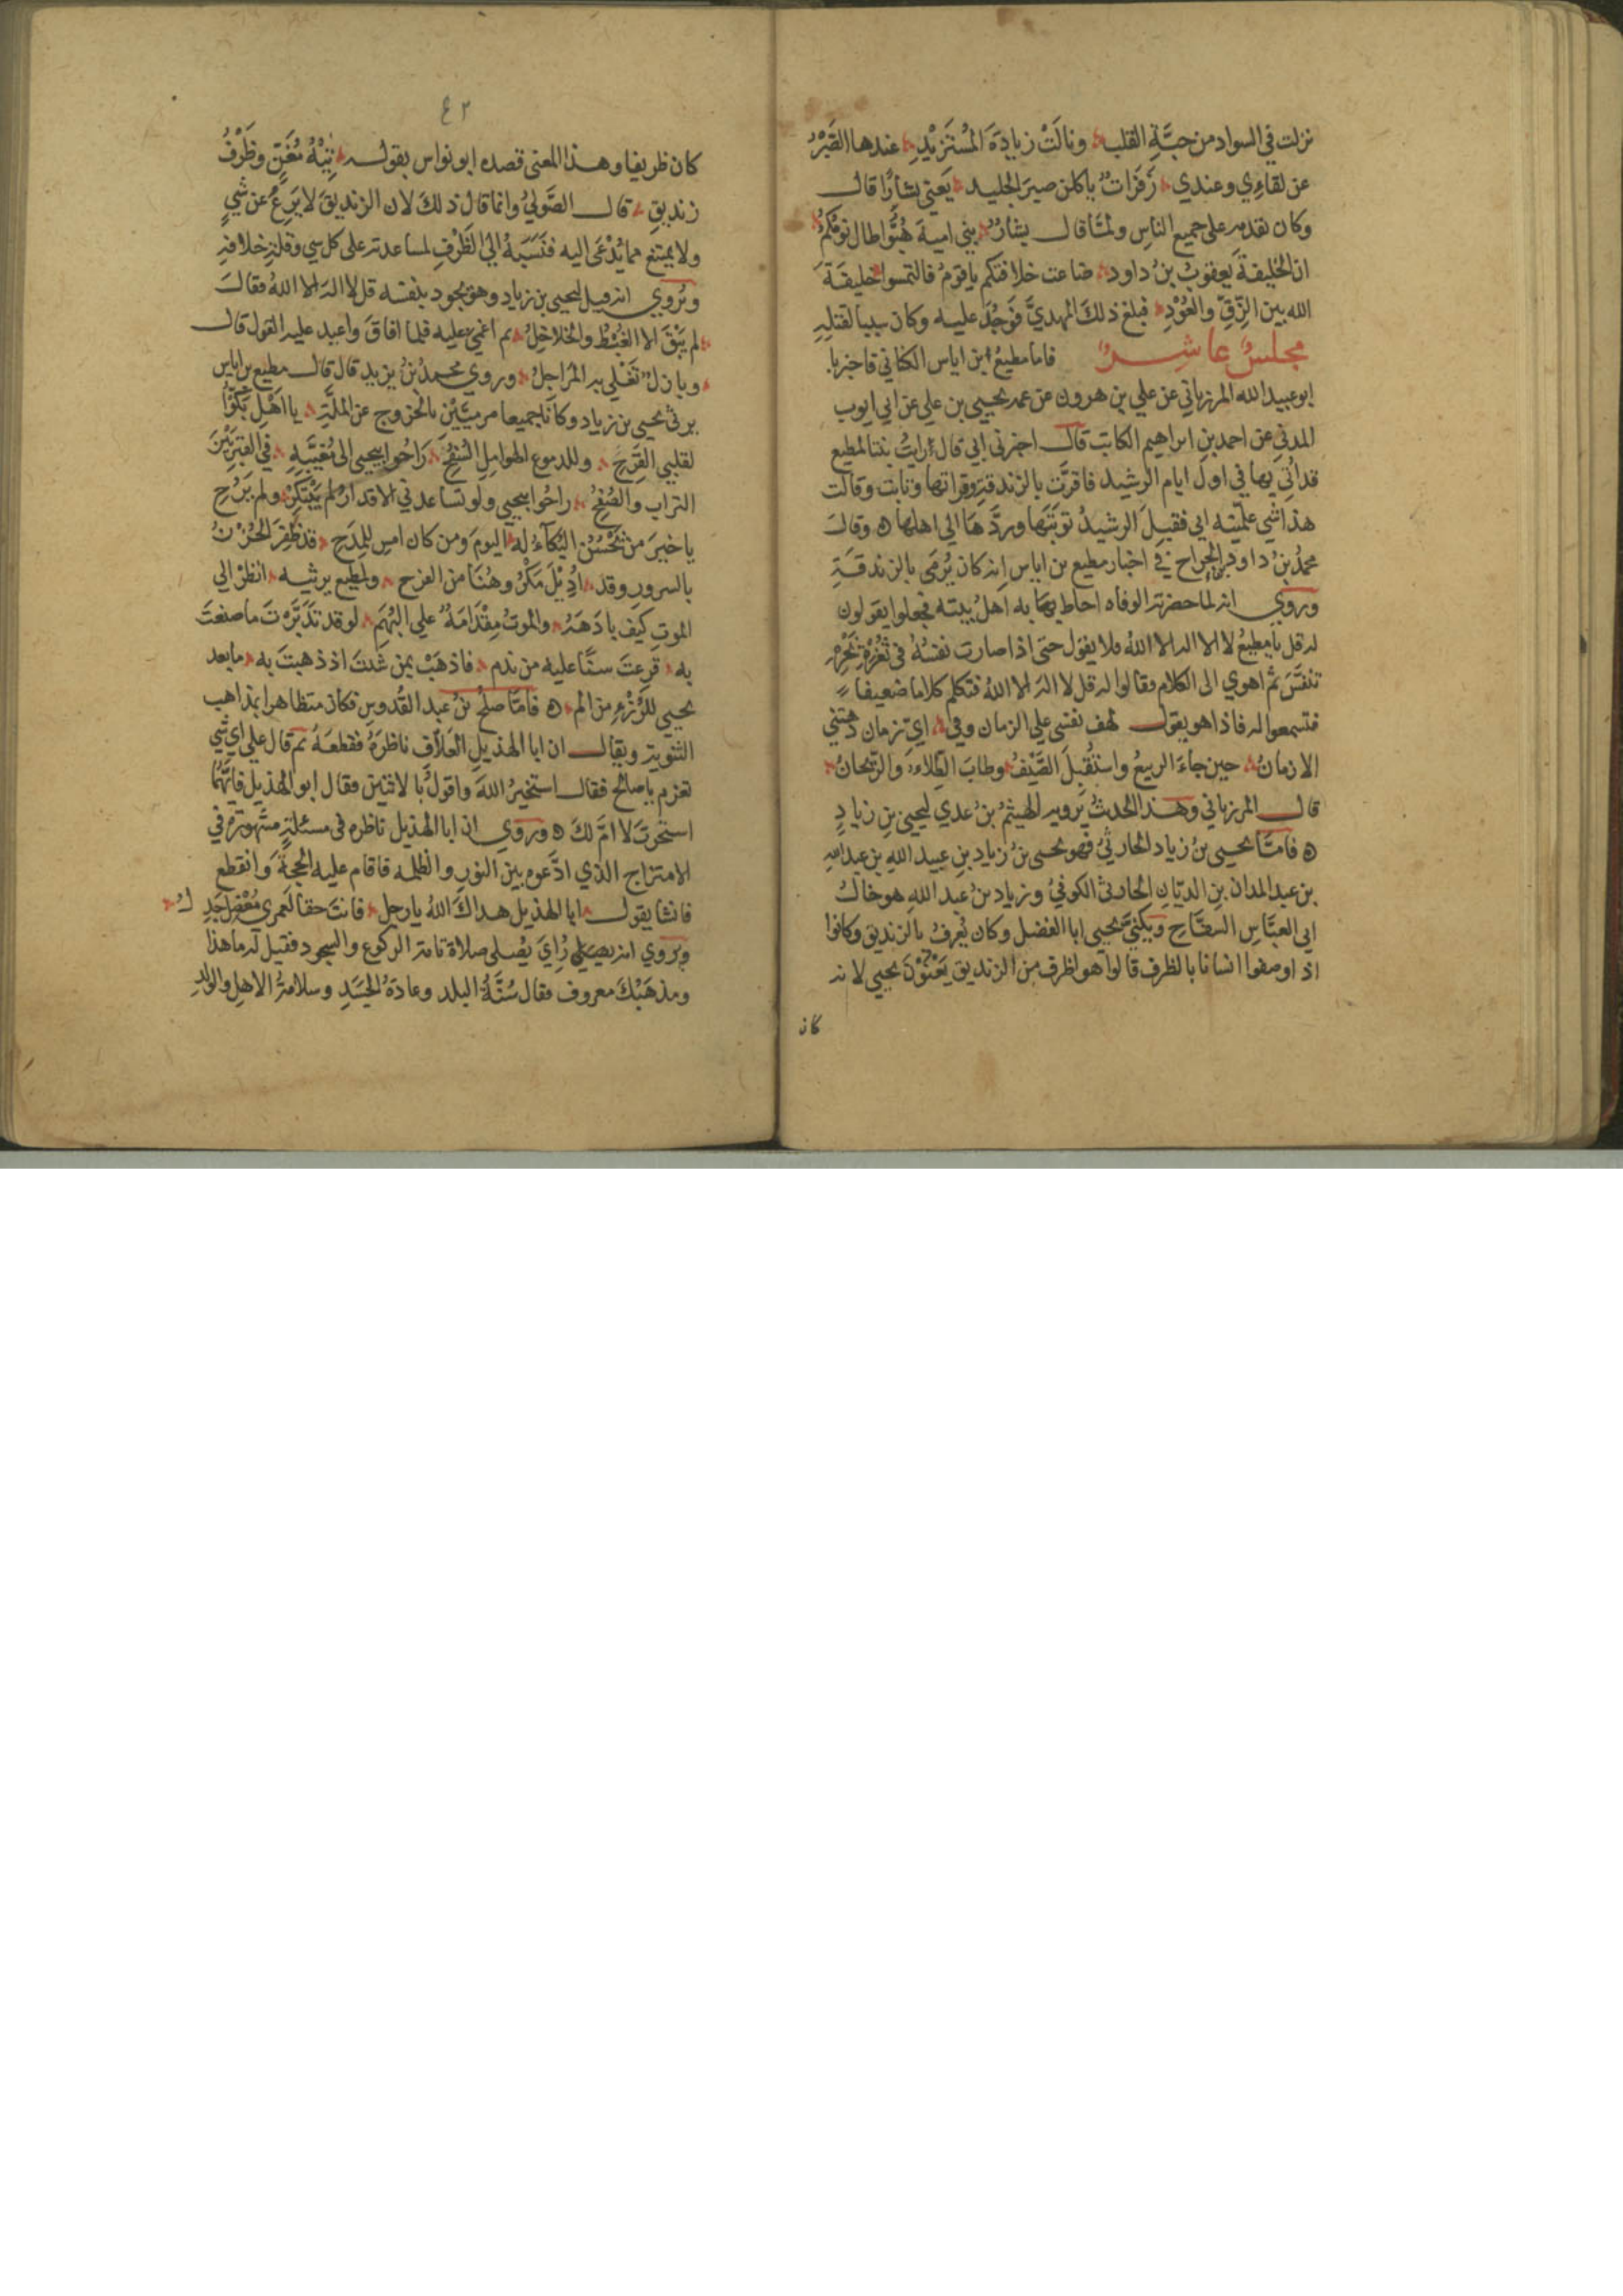 نزلت في السواد من حبَّةِ القلب ونالَتْ زيادَةَ المُسْتَزيْدِ عندها الصَّبْرُ
عن لقاءِي وعندي زَفَرَاتٌ ياكلن صبرَ الجليد يَعني بشارًا قال
وكان نقدمه على جميع الناس ولمّا قال بشارٌ بني امية هُبُّوا طال نومُكمُ
ان الخليفةَ يعقوبُ بنُ داود ضاعت خلافتكم ياقومُ فالتمسوا خليفةَ
الله بين الزِّقِّ والعُوْدِ فبلغ ذلكَ المهديَّ فوَجَدَ عليه وكان سببا لقتلِهِ
مجلسٌ عاشِرٌ فاما مطيعُ ابن اياس الكناني فاخبرنا
ابو عبيد الله المرزباني عن علي بن هرون عن عمه يحيى بن علي عن ابي ايوب
المدني عن احمد بن ابراهيم الكاتب قال اخبرني ابي قال رايتُ بنتا لمطيع
قد اُتي بها في اول ايام الرشيد فاقرَّت بالزندقة وقراتها وتابت وقالت
هذا شي علّمنيه ابي فقبِلَ الرشيدُ توبَتَها وردَّها الى اهلها ٥ وقال
محمدُ بنُ داود بن الجراح في اخبار مطيع بن اياس انه كان يُرمى بالزندقةِ
وروي انه لما حضرته الوفاه احاط به اهلُ بيته فجعلوا يقولون
له قل يا مطيعُ لا اله الا اللهُ فلا يقول حتى اذا صارت نفسُهُ في ثُغْرَةِ نَحْرِهِ
تنفَّسَ ثم اهوي الى الكلام فقالوا له قل لا اله الا اللهُ فتكلم كلاما ضعيفا
فتسمعوا له فاذا هو يقول لهف نفسي علي الزمان وفي ايّ زمان دهتني
الازمانُ حين جاءَ الربيعُ واستُقْبِلَ الصَّيْفُ وطابَ الطِّلاءُ والرَّيحانُ
قال المرزباني وهذا الحديثُ يرويه الهيثمُ بنُ عدي ليحيى بن زيادٍ
٥ فامّا يحيى بنُ زياد الحارثيُّ فهو يحيى بنُ زياد بن عبيد اللهِ بن عبد الله
بن عبد المدان بنِ الديّانِ الحارثي الكوفيُّ وزياد بنُ عبد الله هو خالُ
ابي العبَّاسِ السفّاحِ ويكنيَّ يحيى ابا الفضل وكان يُعرفُ بالزنديق وكانوا
اذا وصفوا انسانا بالظرف قالوا هو اظرف من الزنديق يَعْنُوْنَ يحيى لانه
كان
٤٢
كان ظريفا وهذا المعنى قصده ابو نواس بقوله تِيْهُ مُغَنٍّ وظَرْفُ
زنديقِ قال الصَّوليُ وانما قال ذلكَ لان الزنديقَ لا يَرِعُ عن شيٍ
ولا يمتنع مما يُدْعَى اليه فنَسَبَهُ الي الظَّرْفِ لمساعدته على كل شي وقلةِ خلافهِ
ويُروي انه قيل ليحيى بن زياد وهو يجود بنفسه قل لا اله الا اللهُ فقال
لم يَبْقَ الا القُبُطُ والخلاخِلُ ثم اغميَ عليه فلما افاقَ واعيد عليه القول قال
وبازلٌ تَغْلي به المراجلُ وروي محمدُ بنُ يزيد قال قال مطيع بن اياس
يرثى يحيى بن زياد وكانا جميعا مرميَّيْنِ بالخروج عن الملّةِ يا اهْلِ بَكُّوا
لقلبي القَرِحِ وللدموع الهوامِلِ السُفُحِ رَاحُوا بيحيى الى مُغَيَّبَهٍ في القبر بَيْنَ
التراب والصُفُحِ راحُوا بيحيى ولو تساعدني الاقدارُ لم يَبْتَكِرْ ولم يَرُحِ
يا خيرَ من يَحْسُنُ البُكآءُ له اليومَ ومن كان امسِ للمِدَحِ قد ظَفِرَ الحُزْنُ
بالسرور وقد اُدِيْلَ مَكْرُوهُنَا من الفرح ولمطيع يرثيه انظُرْ الي
الموتِ كيف بادَهَهُ والموتُ مِقْدَامَهٌ علي البُهَمِ لو قد تَدَبَّرْتَ ما صنعتَ
به قرعتَ سنًّا عليه من ندم فاذهَبْ بمن شئتَ اذ ذهبتَ به ما بعد
يحيى للرُزْءِ من الم ٥ فامّا صلحُ بنُ عبد القُدوسِ فكان متظاهرا بمذاهب
الثنوية ويقال ان ابا الهذيلِ العلّافِ ناظرَهُ فقطعَهُ ثم قال علي اي شي
تعزم يا صالح فقال استخيرُ اللهَ واقولُ بالاثنين فقال ابو الهذيل فايَّهُمَا
استخرتَ لا امَّ لكَ ٥ وروي ان ابا الهذيل ناظره في مسئلةٍ مشهورةٍ في
الامتزاج الذي ادَّعوه بين النور والظلمه فاقام عليه الحجةَ وانقطع
فانشا يقول ابا الهذيل هداكَ اللهُ يا رجل فانتَ حقا لَعمري مُعْضِلٌ جَدِلُ
ويروي انه رُأِيَ يُصلي صلاة تامة الركوع والسجود فقيل له ما هذا
ومذهَبُكَ معروف فقال سُنَّةُ البلد وعادَةُ الجَسَدِ وسلامةُ الاهلِ والولدِ